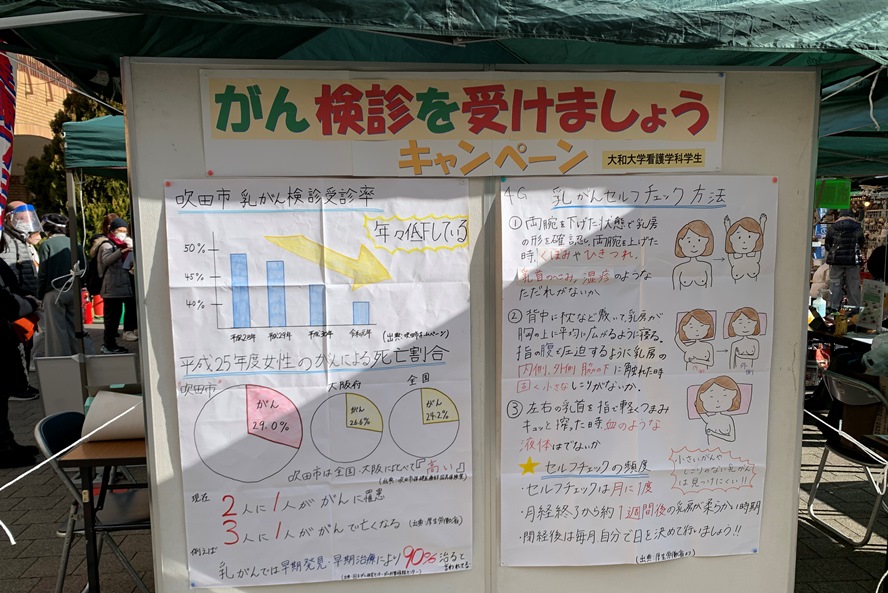 がん検診を受けましょう
キャンペーン
大和大学看護学科学生
吹田市 乳がん検診受診率
年々低下してる
50%
45%
40%
平成28年 平成29年 平成30年 令和元年
平成25年度女性のがんによる死亡割合
"吹田市"
大阪府
全国
がん
29.0%
がん
26.6%
がん
24.2%
吹田市は全国・大阪にくらべて『高い』
現在
2人に1人ががんに罹患
3人に1人ががんで亡くなる (出典:厚生労働省)
例えば
乳がんでは早期発見・早期治療により90%治ると
言われてる
4G 乳がんセルフチェック方法
①両腕を下げた状態で乳房
の形を確認し、両腕を上げた
時、くぼみやひきつれ、
乳首のへこみ、湿疹のような
ただれがないか
②背中に枕など敷いて、乳房が
胸の上に平均に広がるように寝る。
指の腹で圧迫するように乳房の
内側、外側、脇の下に触れた時
固く小さなしこりがないか。
③左右の乳首を指で軽くつまみ
キュッと搾った時血のような
液体はでないか
セルフチェックの頻度
・セルフチェックは月に1度
・月経終了から約1週間後の乳房が柔らかい時期
・閉経後は毎月自分で日を決めて行いましょう!!
小さいがんや
しこりのない乳がん
は見つけにくい!!